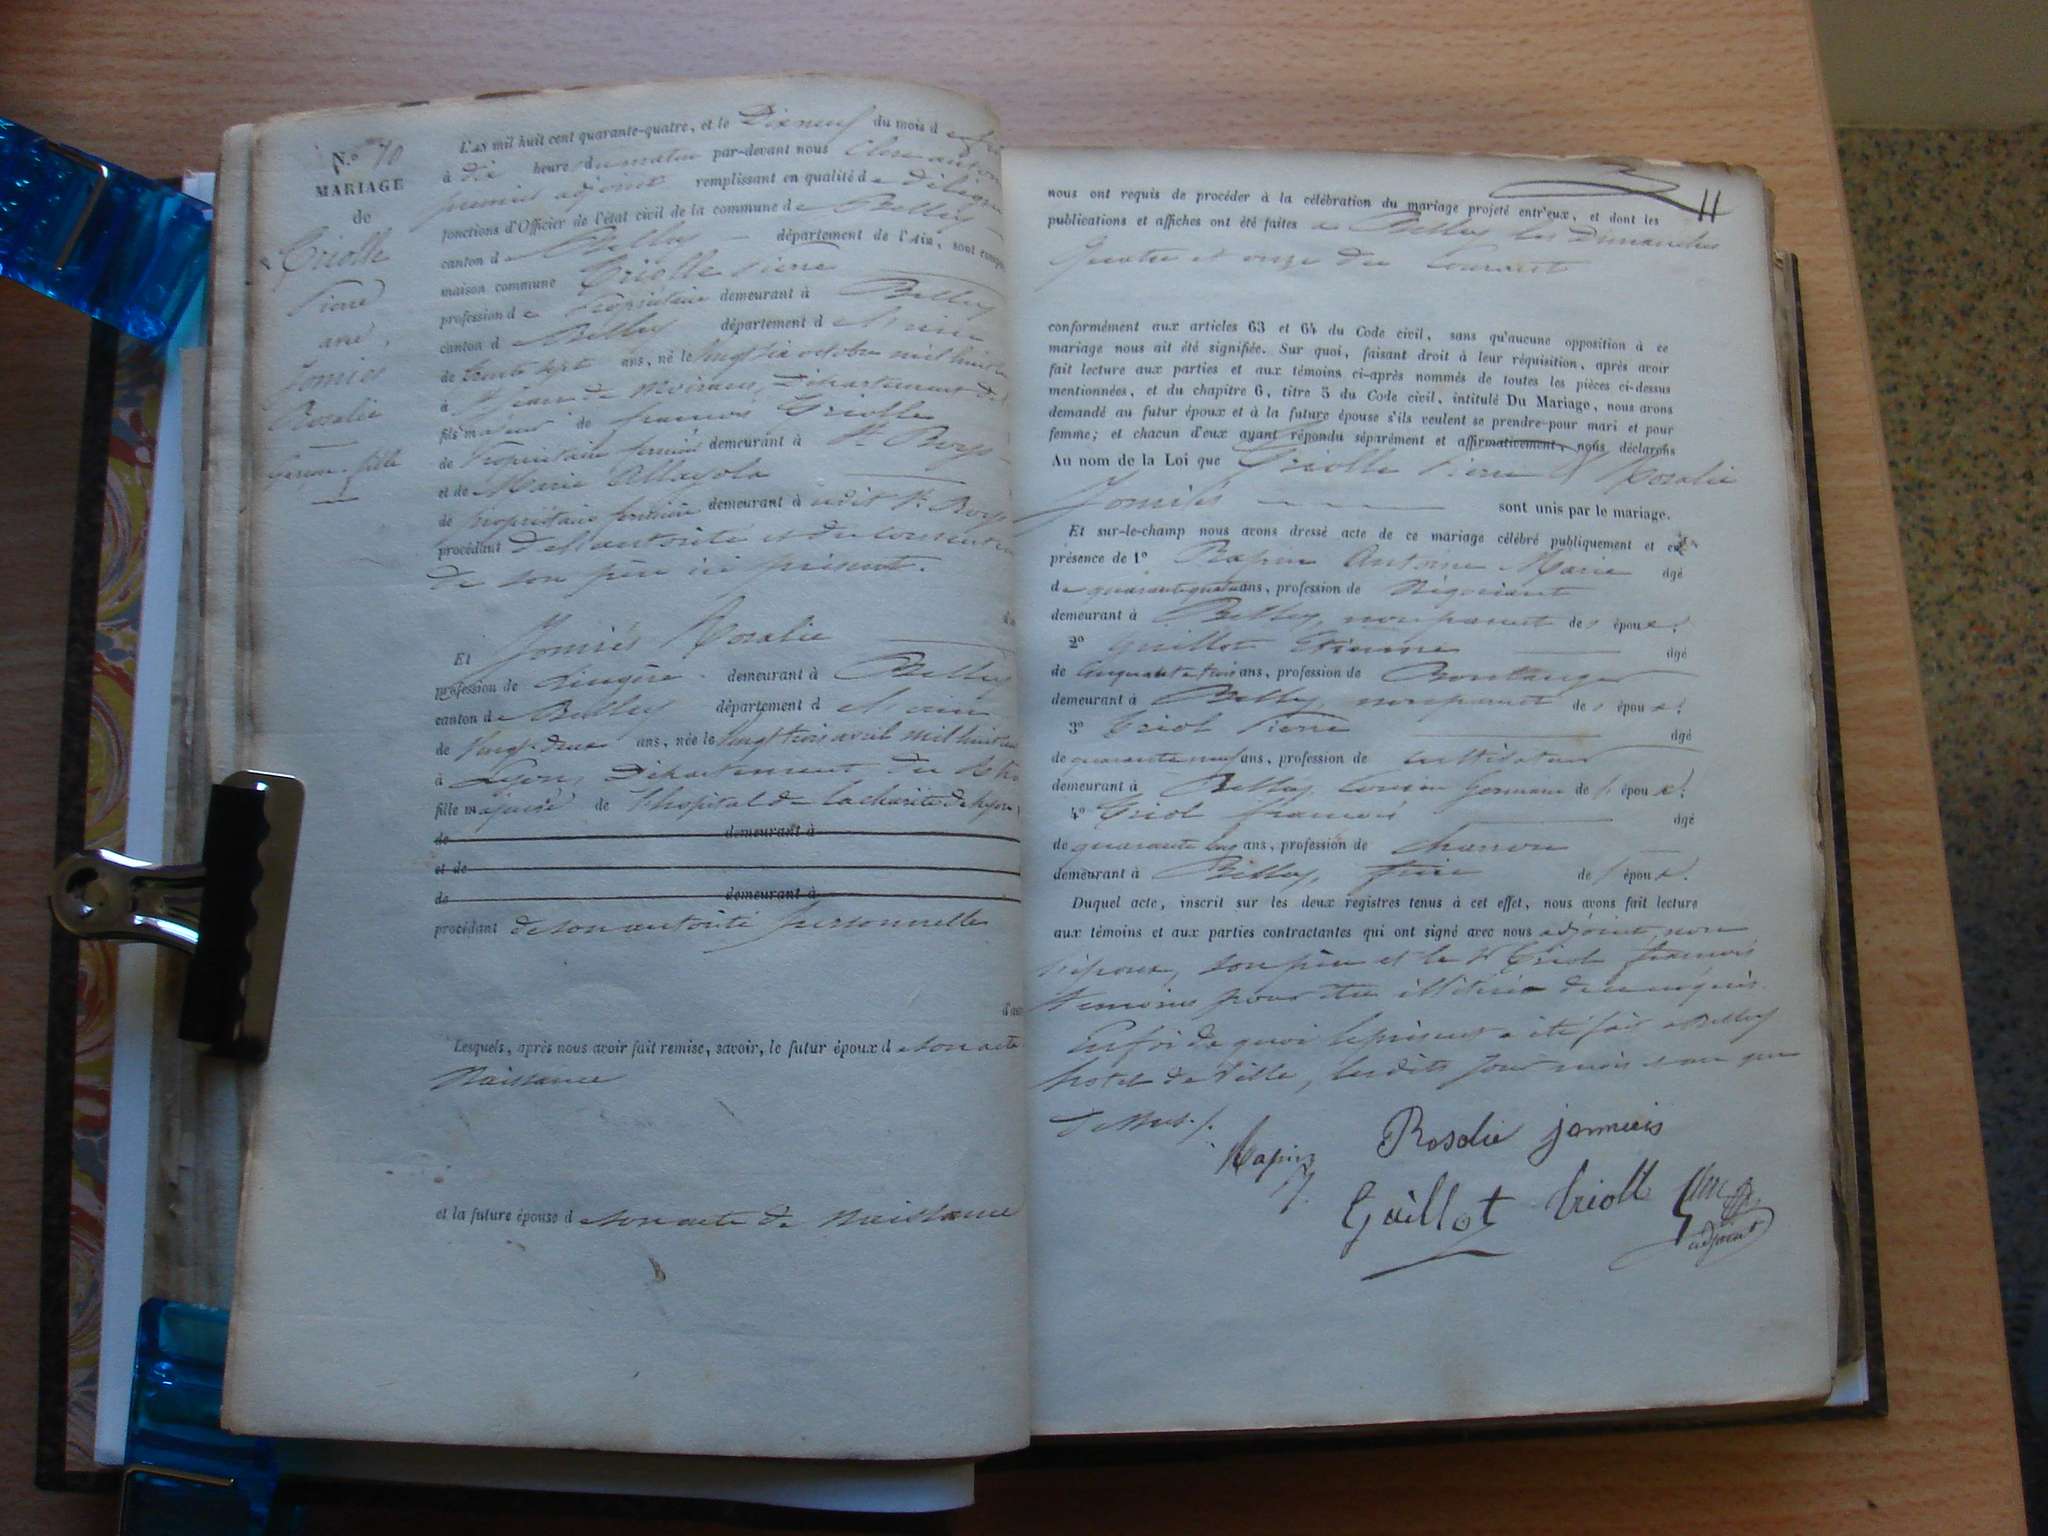 N.º 10
MARIAGE
de
Griolle
Pierre
avec
Jomiés
Rosalie
garçon. fille
L'AN mil huit cent quarante-quatre, et le Dixneuf du mois d
à dix heure du matin par-devant nous
premier adjoint remplissant en qualité de délégué
fonctions d'Officier de l'état civil de la commune de Belley
canton de Belley département de l'Ain, sont
maison commune Griolle Pierre
profession de propriétaire demeurant à Belley
canton de Belley département d
de trente sept ans, né le vingt six octobre mil huit
à St jean de Moirans, Département de
fils majeur de francois Griolle
de Propriétaire demeurant à St
et de Marie
de propriétaire demeurant à
procédant de son autorité et du consentement
de son père ici présent.
Et Jomiés Rosalie
profession de Lingère demeurant à Belley
canton de Belley département d
de vingt-deux ans, née le vingt trois avril mil huit cent
à Lyon, Département du
fille majeure de l'hopital de la charité de Lyon,
de demeurant à
et de
de demeurant à
procédant de son autorité personnelle
Lesquels, après nous avoir fait remise, savoir, le futur époux de son acte
Naissance
et la future épouse de son acte de Naissance
11
nous ont requis de procéder à la célébration du mariage projeté entr'eux, et dont les
publications et affiches ont été faites à Belley les Dimanches
Quatre et onze du Courant
conformément aux articles 63 et 64 du Code civil, sans qu'aucune opposition à ce
mariage nous ait été signifiée. Sur quoi, faisant droit à leur réquisition, après avoir
fait lecture aux parties et aux témoins ci-après nommés de toutes les pièces ci-dessus
mentionnées, et du chapitre 6, titre 5 du Code civil, intitulé Du Mariage, nous avons
demandé au futur époux et à la future épouse s'ils veulent se prendre pour mari et pour
femme; et chacun d'eux ayant répondu séparément et affirmativement, nous déclarons
Au nom de la Loi que Griolle Pierre & Rosalie
Jomiés sont unis par le mariage.
Et sur-le-champ nous avons dressé acte de ce mariage célébré publiquement et en
présence de 1º Rapin Antoine Marie âgé
de quarante quatre ans, profession de Négociant
demeurant à Belley, non parent des époux.
2º Guillot Etienne âgé
de cinquante trois ans, profession de Boulanger
demeurant à Belley, non parent des époux.
3º Griol Pierre âgé
de quarante neuf ans, profession de cultivateur
demeurant à Belley, Cousin Germain de l'époux.
4º Griol francois âgé
de quarante ans, profession de charron
demeurant à Belley, frère de l'époux.
Duquel acte, inscrit sur les deux registres tenus à cet effet, nous avons fait lecture
aux témoins et aux parties contractantes qui ont signé avec nous adjoint, non
l'époux, son père et le Sr Griol francois
témoins pour être illitéré de ce enquis.
En foi de quoi le présent a été fait à Belley
hotel de Ville, lesdits jour mois & an que
dessus./.
Rapin Rosalie jomiéis
Guillot Griolle
adjoint